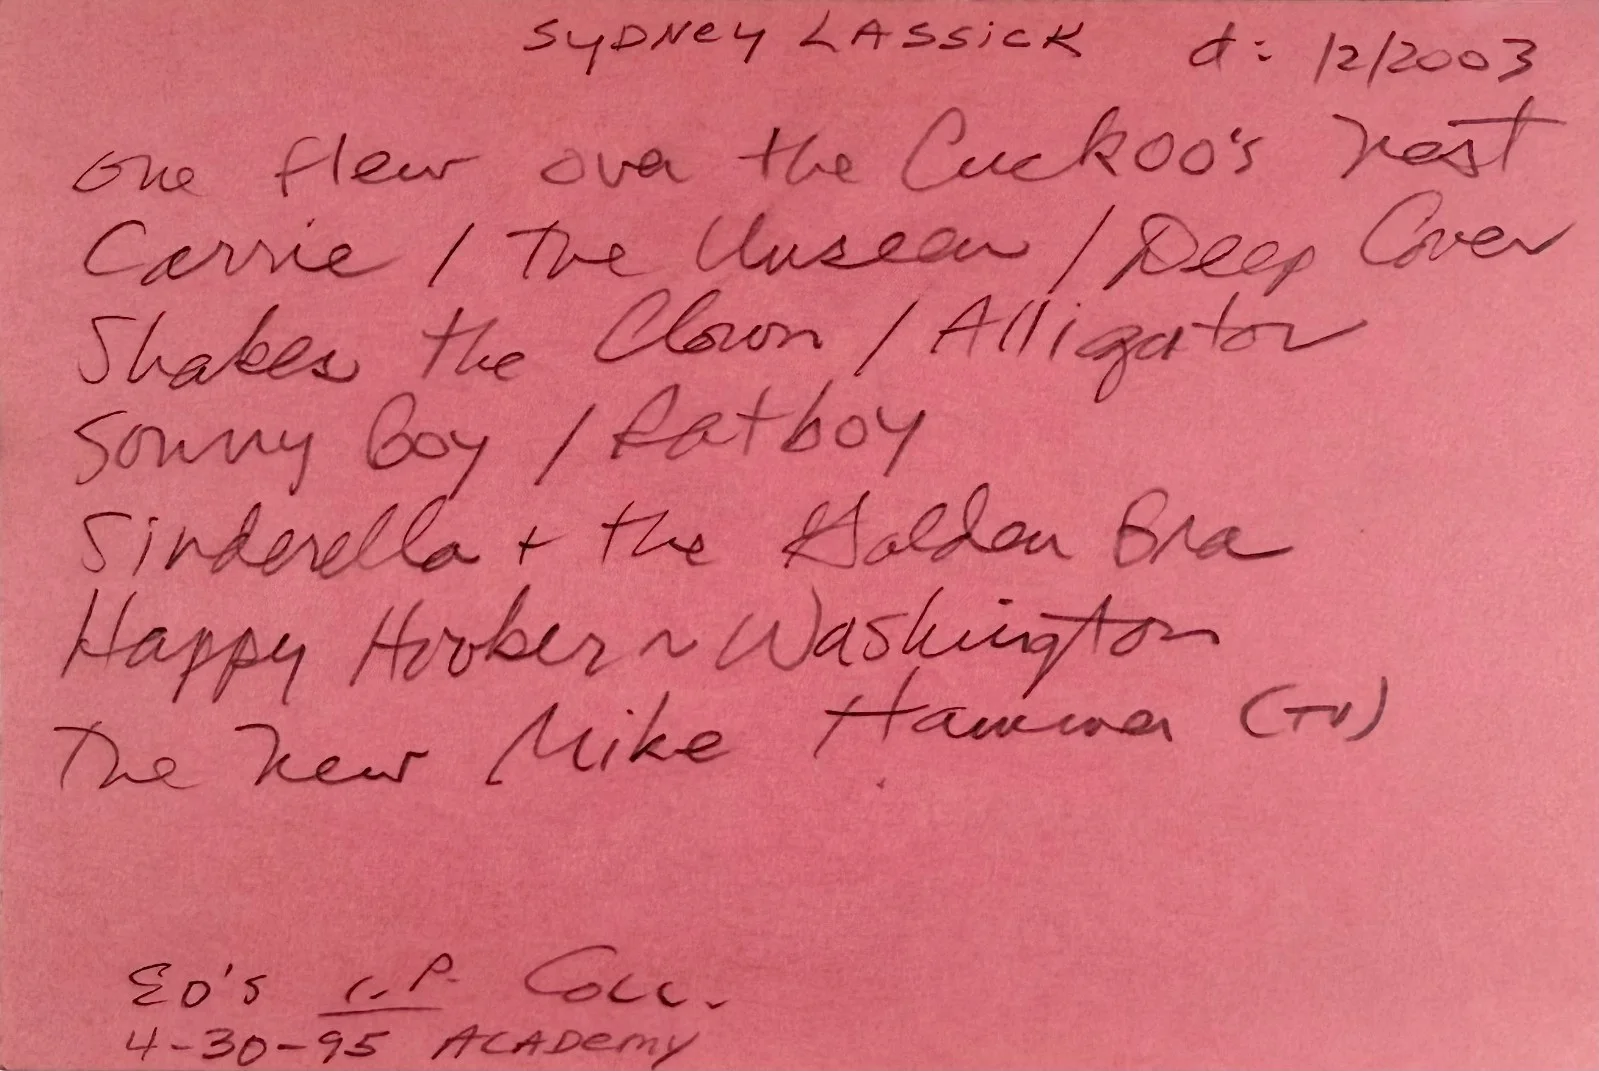 SYDNEY LASSICK d: 12/2003
one flew over the Cuckoo's nest
Carrie / The Unseen / Deep Cover
Shakes the Clown / Alligator
Sonny Boy / Ratboy
Sinderella + the Golden Bra
Happy Hooker ~ Washington
The New Mike Hammer (TV)
ED'S I.P. COLL.
4-30-95 ACADEMY